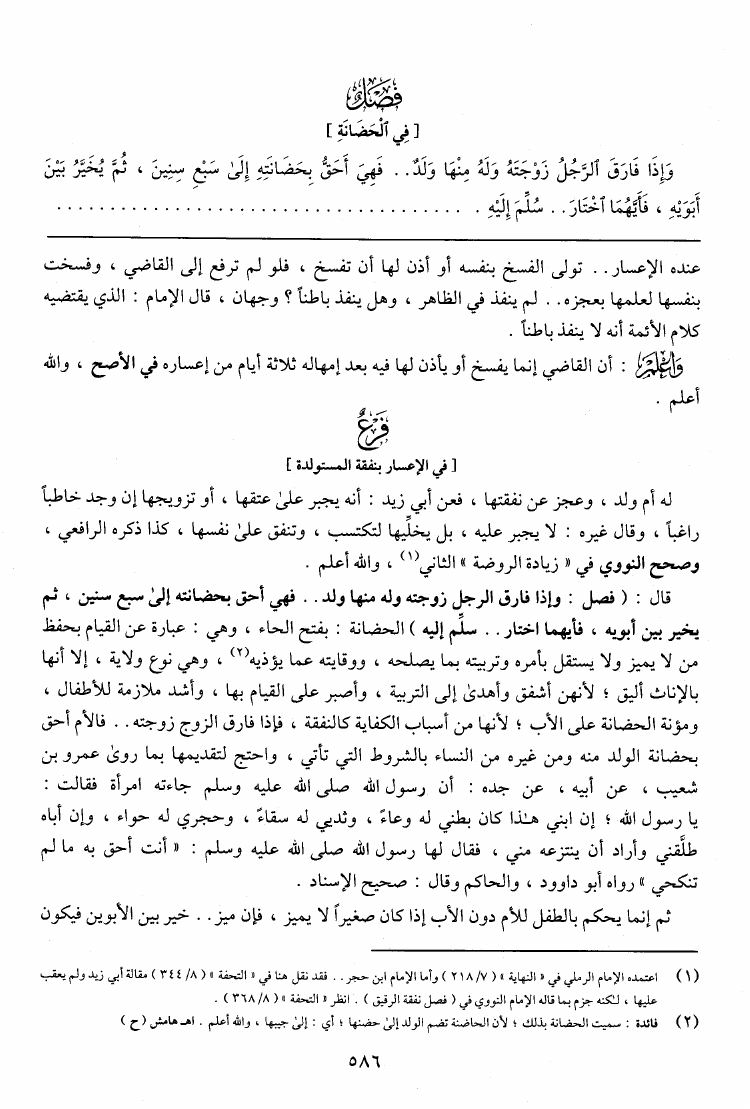 فَصْلٌ
[ فِي ٱلْحَضَانَةِ ]
وَإِذَا فَارَقَ ٱلرَّجُلُ زَوْجَتَهُ وَلَهُ مِنْهَا وَلَدٌ.. فَهِيَ أَحَقُّ بِحَضَانَتِهِ إِلَىٰ سَبْعِ سِنِينَ ، ثُمَّ يُخَيَّرُ بَيْنَ
أَبَوَيْهِ ، فَأَيَّهُمَا ٱخْتَارَ.. سُلِّمَ إِلَيْهِ . . . . . . . . . . . . . . . . . . . . . . . . . . . . . . . . . . . .
عنده الإعسار.. تولى الفسخ بنفسه أو أذن لها أن تفسخ ، فلو لم ترفع إلى القاضي ، وفسخت
بنفسها لعلمها بعجزه.. لم ينفذ في الظاهر ، وهل ينفذ باطناً ؟ وجهان ، قال الإمام : الذي يقتضيه
كلام الأئمة أنه لا ينفذ باطناً .
وَٱعْلَمْ : أن القاضي إنما يفسخ أو يأذن لها فيه بعد إمهاله ثلاثة أيام من إعساره في الأصح ، والله
أعلم .
فَرْعٌ
[ في الإعسار بنفقة المستولدة ]
له أم ولد ، وعجز عن نفقتها ، فعن أبي زيد : أنه يجبر علىٰ عتقها ، أو تزويجها إن وجد خاطباً
راغباً ، وقال غيره : لا يجبر عليه ، بل يخلِّيها لتكتسب ، وتنفق علىٰ نفسها ، كذا ذكره الرافعي ،
وصحح النووي في « زيادة الروضة » الثاني(١) ، والله أعلم .
قال : ( فصل : وإذا فارق الرجل زوجته وله منها ولد.. فهي أحق بحضانته إلىٰ سبع سنين ، ثم
يخير بين أبويه ، فأيهما اختار.. سلِّم إليه ) الحضانة : بفتح الحاء ، وهي : عبارة عن القيام بحفظ
من لا يميز ولا يستقل بأمره وتربيته بما يصلحه ، ووقايته عما يؤذيه(٢) ، وهي نوع ولاية ، إلا أنها
بالإناث أليق ؛ لأنهن أشفق وأهدىٰ إلى التربية ، وأصبر على القيام بها ، وأشد ملازمة للأطفال ،
ومؤنة الحضانة على الأب ؛ لأنها من أسباب الكفاية كالنفقة ، فإذا فارق الزوج زوجته.. فالأم أحق
بحضانة الولد منه ومن غيره من النساء بالشروط التي تأتي ، واحتج لتقديمها بما روىٰ عمرو بن
شعيب ، عن أبيه ، عن جده : أن رسول الله صلى الله عليه وسلم جاءته امرأة فقالت :
يا رسول الله ؛ إن ابني هـٰذا كان بطني له وعاءً ، وثديي له سقاءً ، وحجري له حواء ، وإن أباه
طلَّقني وأراد أن ينتزعه مني ، فقال لها رسول الله صلى الله عليه وسلم : « أنت أحق به ما لم
تنكحي » رواه أبو داوود ، والحاكم وقال : صحيح الإسناد .
ثم إنما يحكم بالطفل للأم دون الأب إذا كان صغيراً لا يميز ، فإن ميز.. خير بين الأبوين فيكون
(١) اعتمده الإمام الرملي في « النهاية » ( ٢١٨/٧ ) وأما الإمام ابن حجر.. فقد نقل هنا في « التحفة » ( ٣٤٤/٨ ) مقالة أبي زيد ولم يعقب
عليها ، لـٰكنه جزم بما قاله الإمام النووي في ( فصل نفقة الرقيق ) . انظر « التحفة » ( ٣٦٨/٨ ) .
(٢) فائدة : سميت الحضانة بذلك ؛ لأن الحاضنة تضم الولد إلىٰ حضنها ؛ أي : إلىٰ جيبها ، والله أعلم . اهـ هامش ( ح )
٥٨٦